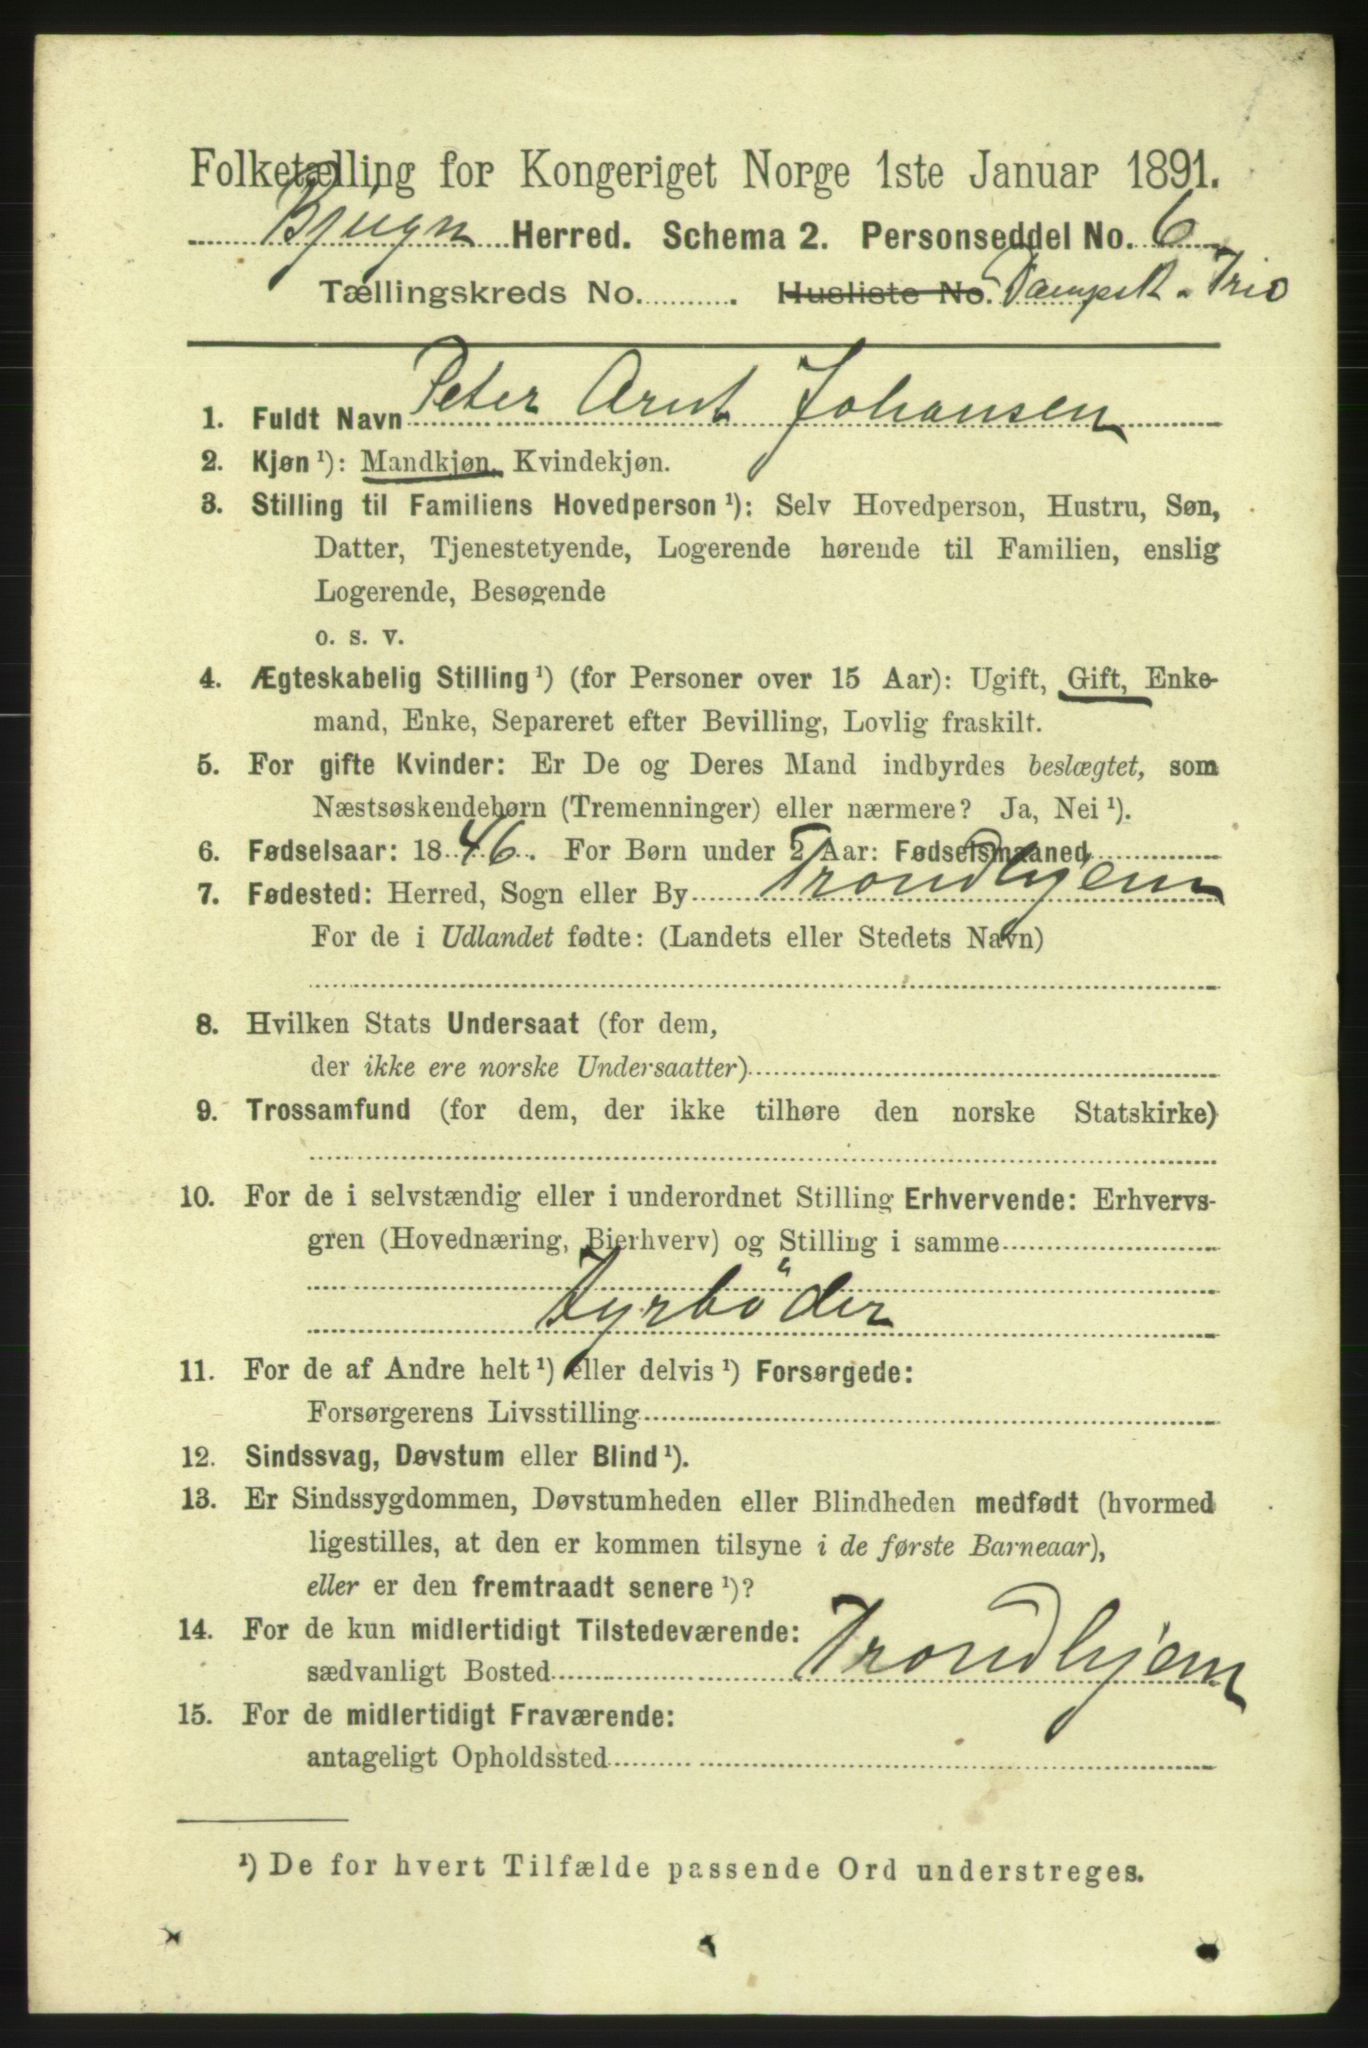 Folketælling for Kongeriget Norge 1ste Januar 1891.
Bjugn Herred. Schema 2. Personseddel No. 6
Tællingskreds No. . Husliste No. Dampsk. Trio
1. Fuldt Navn Peter Arnt Johansen
2. Kjøn ¹): Mandkjøn, Kvindekjøn.
3. Stilling til Familiens Hovedperson ¹): Selv Hovedperson, Hustru, Søn,
Datter, Tjenestetyende, Logerende hørende til Familien, enslig
Logerende, Besøgende
o. s. v.
4. Ægteskabelig Stilling ¹) (for Personer over 15 Aar): Ugift, Gift, Enke-
mand, Enke, Separeret efter Bevilling, Lovlig fraskilt.
5. For gifte Kvinder: Er De og Deres Mand indbyrdes beslægtet, som
Næstsøskendebørn (Tremenninger) eller nærmere? Ja, Nei ¹).
6. Fødselsaar: 1846. For Børn under 2 Aar: Fødselsmaaned
7. Fødested: Herred, Sogn eller By Trondhjem
For de i Udlandet fødte: (Landets eller Stedets Navn)
8. Hvilken Stats Undersaat (for dem,
der ikke ere norske Undersaatter)
9. Trossamfund (for dem, der ikke tilhøre den norske Statskirke)
10. For de i selvstændig eller i underordnet Stilling Erhvervende: Erhvervs-
gren (Hovednæring, Bierhverv) og Stilling i samme
Fyrböder
11. For de af Andre helt ¹) eller delvis ¹) Forsørgede:
Forsørgerens Livsstilling
12. Sindssvag, Døvstum eller Blind ¹).
13. Er Sindssygdommen, Døvstumheden eller Blindheden medfødt (hvormed
ligestilles, at den er kommen tilsyne i de første Barneaar),
eller er den fremtraadt senere ¹)?
14. For de kun midlertidigt Tilstedeværende:
sædvanligt Bosted Trondhjem
15. For de midlertidigt Fraværende:
antageligt Opholdssted
¹) De for hvert Tilfælde passende Ord understreges.